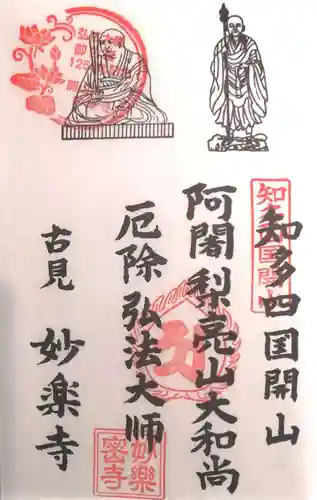 知多四国開山
阿闍梨亮山大和尚
厄除弘法大師
古見 妙楽寺
知多四国開山
妙樂密寺